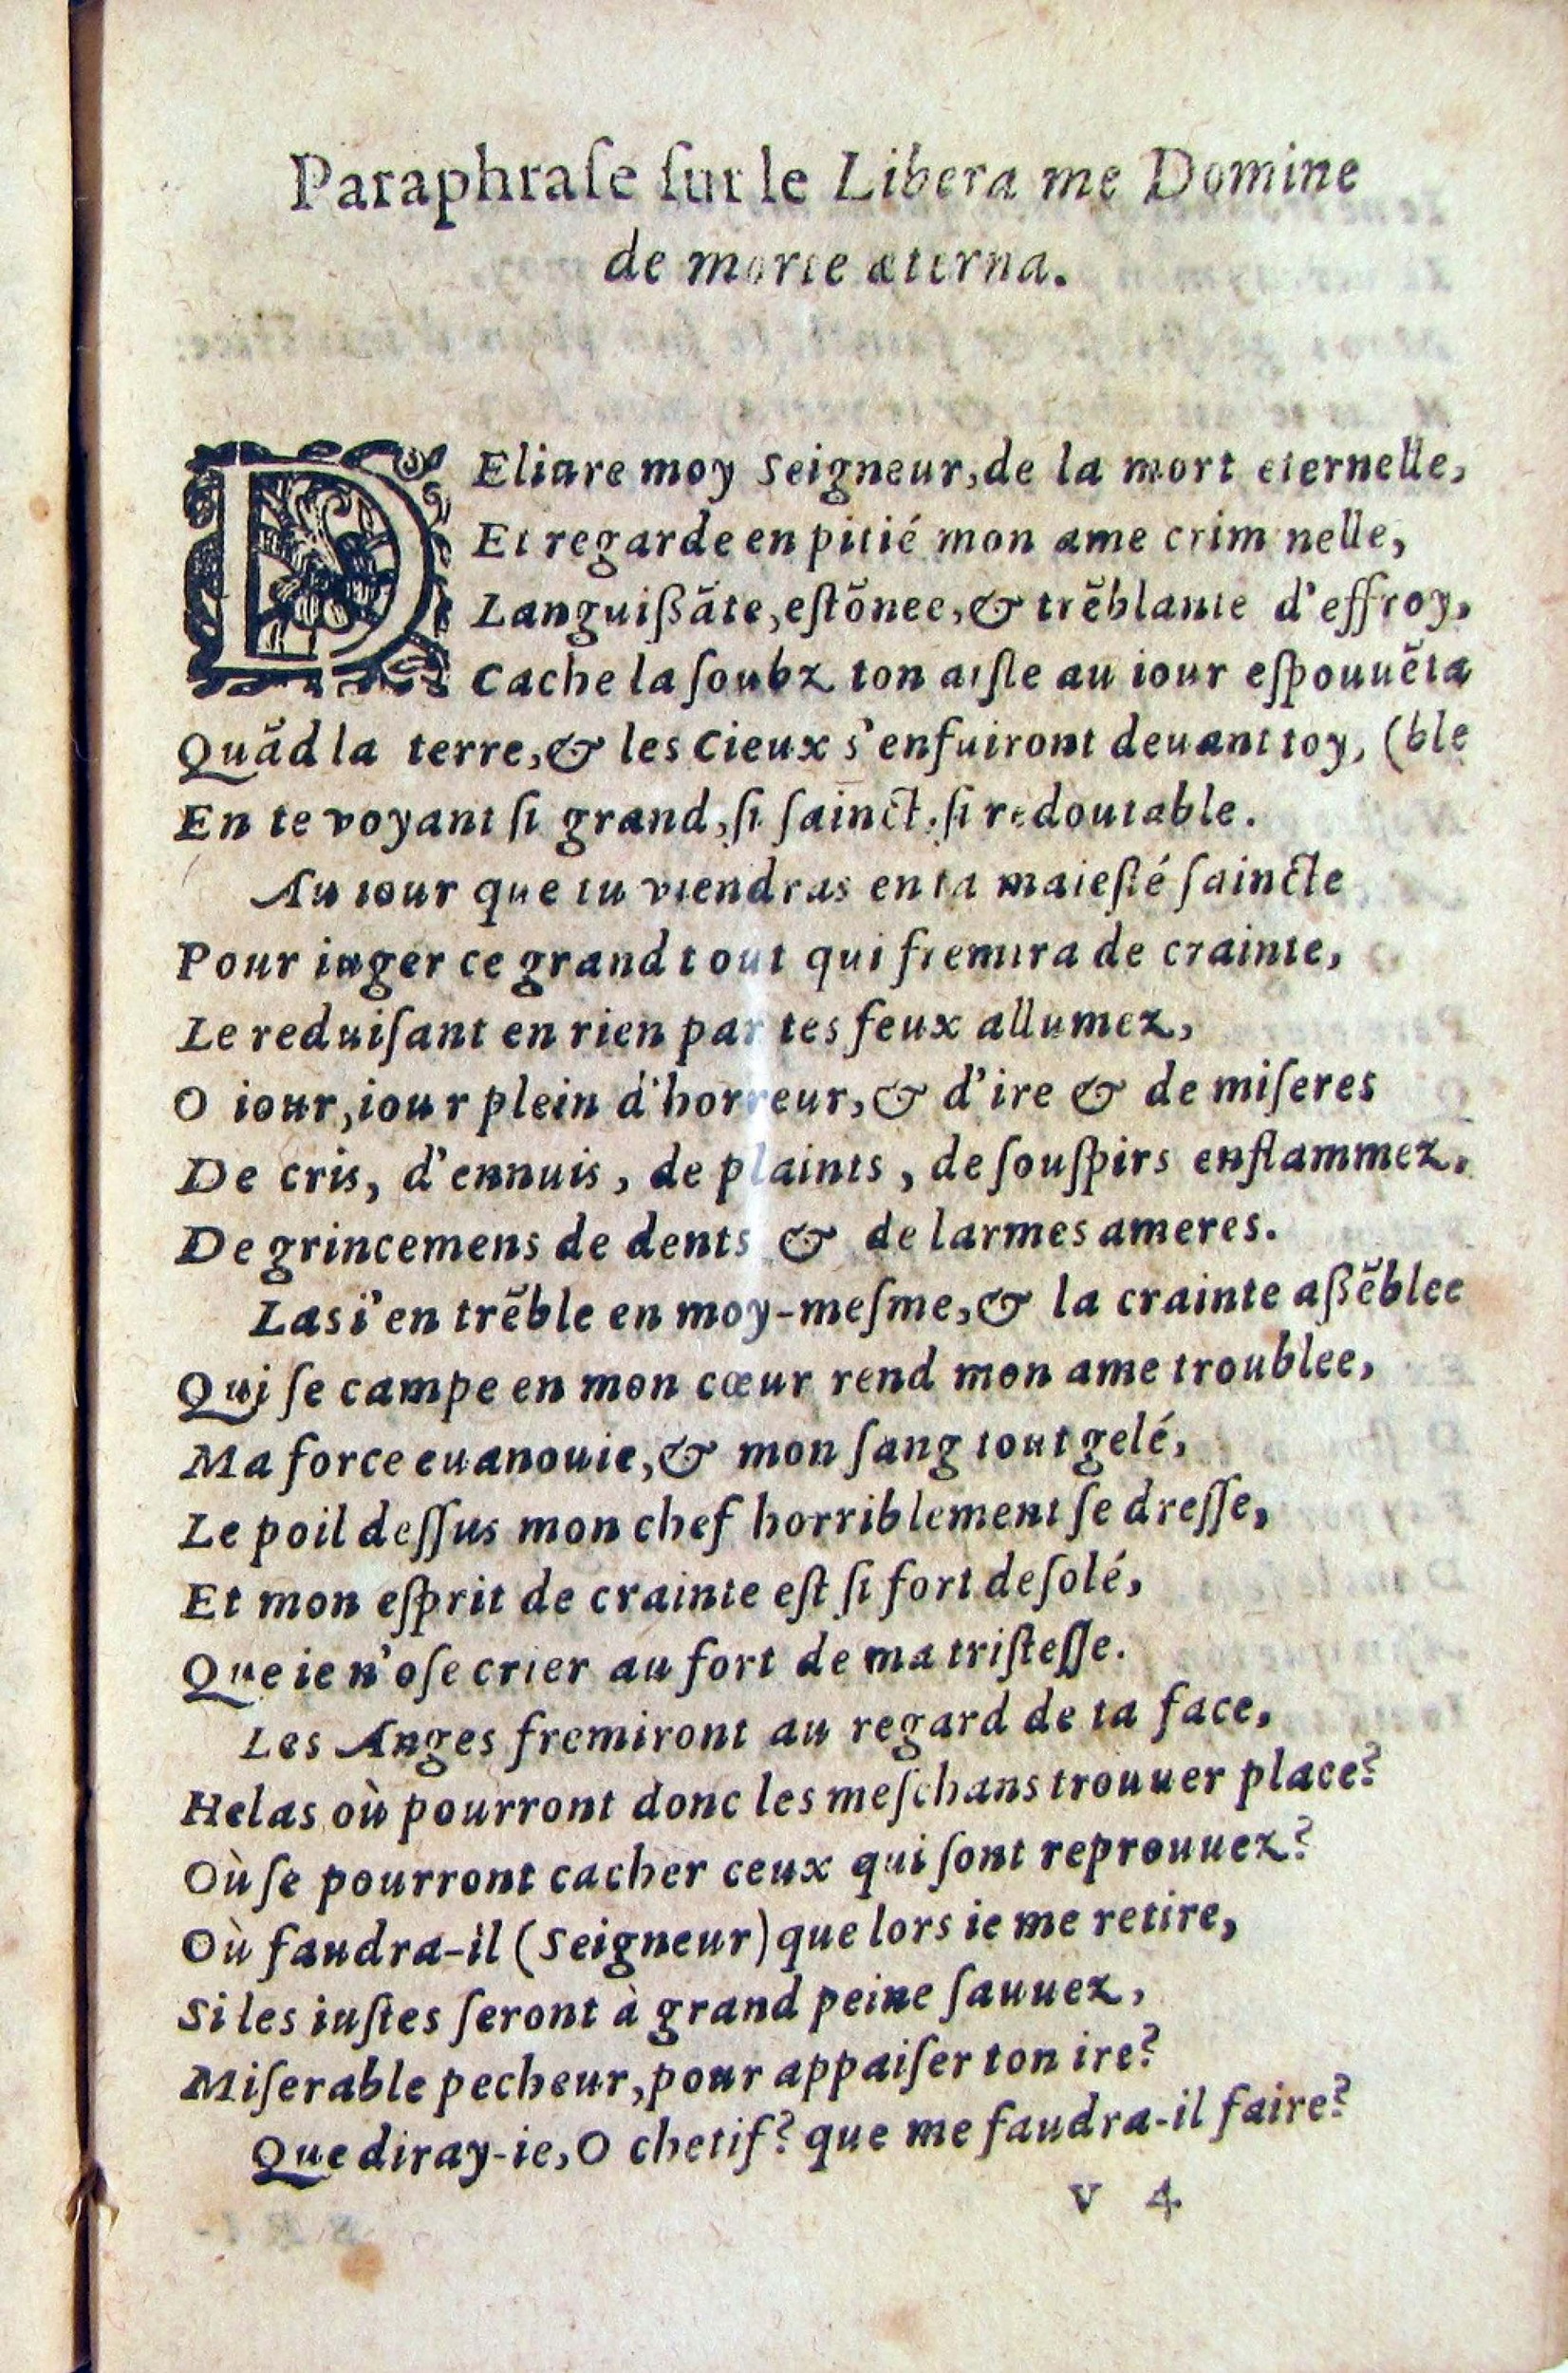 Paraphraſe ſur le Libera me Domine
de morte æterna.
DEliure moy Seigneur, de la mort eternelle,
Et regarde en pitié mon ame criminelle,
Languißãte, eſtõnee, & trẽblante d'effroy,
Cache la ſoubz ton aiſle au iour eſpouuẽta
Quãd la terre, & les Cieux s'enfuiront deuant toy, (ble
En te voyant ſi grand, ſi ſainct, ſi redoutable.
Au iour que tu viendras en ta maieſté ſaincte
Pour iuger ce grand tout qui fremira de crainte,
Le reduiſant en rien par tes feux allumez,
O iour, iour plein d'horreur, & d'ire & de miſeres
De cris, d'ennuis, de plaints, de ſouſpirs enflammez,
De grincemens de dents & de larmes ameres.
Las i'en trẽble en moy-meſme, & la crainte aßẽblee
Qui ſe campe en mon cœur rend mon ame troublee,
Ma force euanouie, & mon ſang tout gelé,
Le poil deſſus mon chef horriblement ſe dreſſe,
Et mon eſprit de crainte eſt ſi fort deſolé,
Que ie n'oſe crier au fort de ma triſteſſe.
Les Anges fremiront au regard de ta face,
Helas où pourront donc les meſchans trouuer place?
Où ſe pourront cacher ceux qui ſont reprouuez?
Où faudra-il (Seigneur) que lors ie me retire,
Si les iuſtes ſeront à grand peine ſauuez,
Miſerable pecheur, pour appaiſer ton ire?
Que diray-ie, O chetif? que me faudra-il faire?
V 4